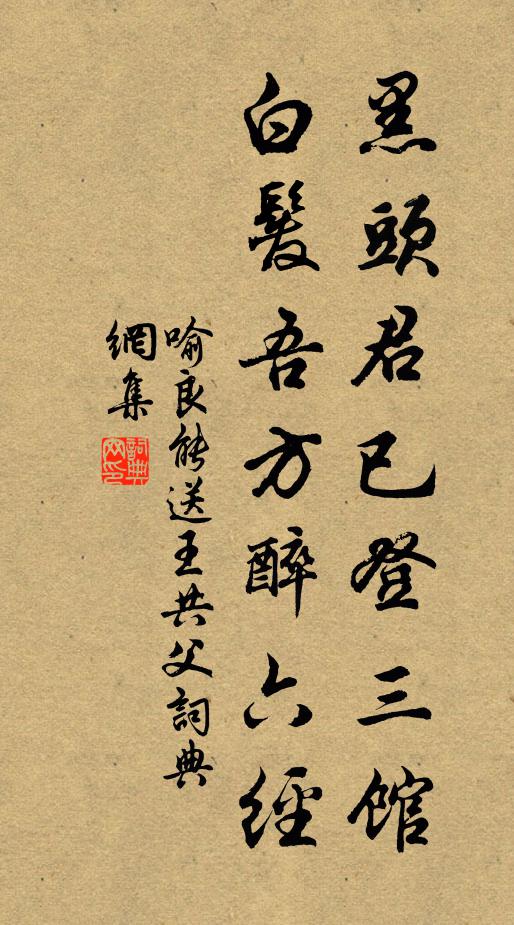 黑頭君已登三館
白髮吾方醉六經
喻良能送王共父詞典
網集
詞典
网印